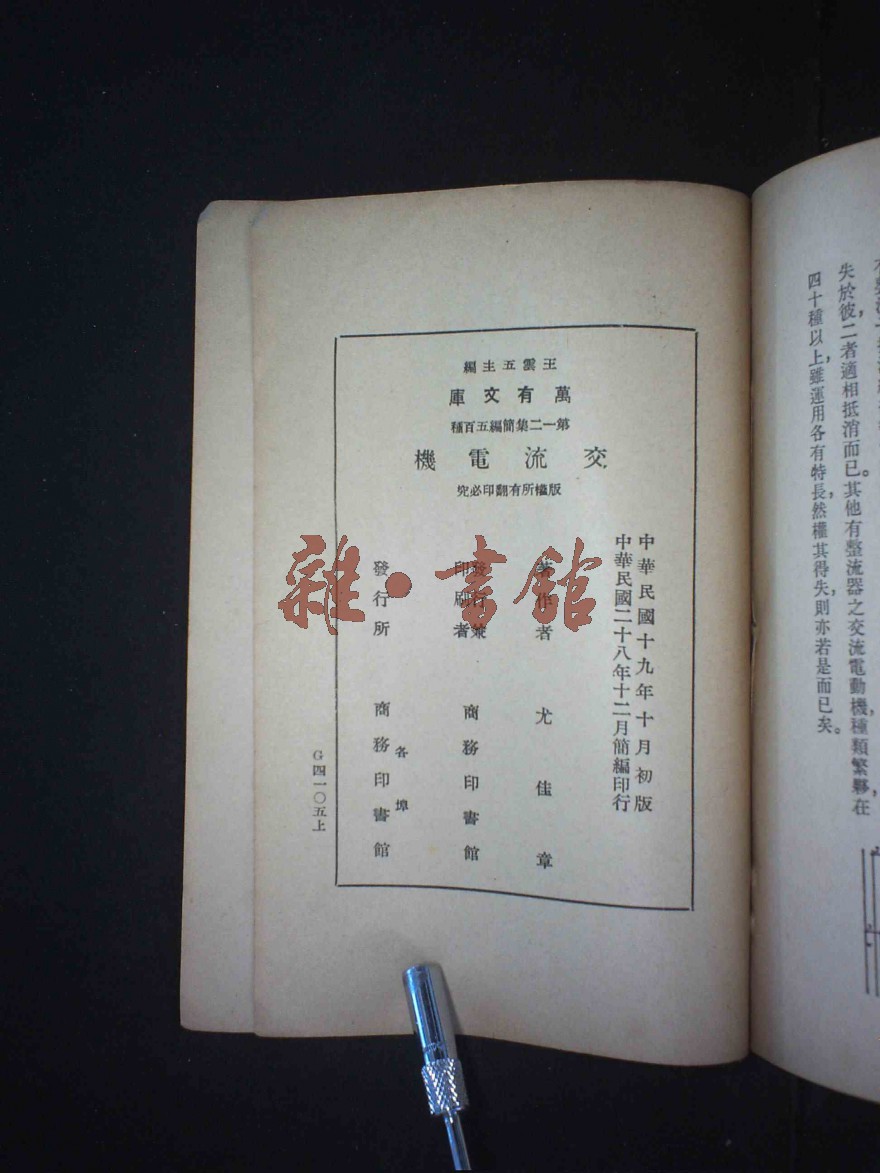 王雲五主編
萬有文庫
第一二集簡編五百種
交流電機
版權所有翻印必究
中華民國十九年十月初版
中華民國二十八年十二月簡編印行
著作者 尤佳章
發行兼印刷者 商務印書館
發行所 各埠 商務印書館
G四一〇五上
雜·書館
失於彼,二者適相抵消而已。其他有整流器之交流電動機,種類繁夥,在
四十種以上,雖運用各有特長,然權其得失,則亦若是而已矣。